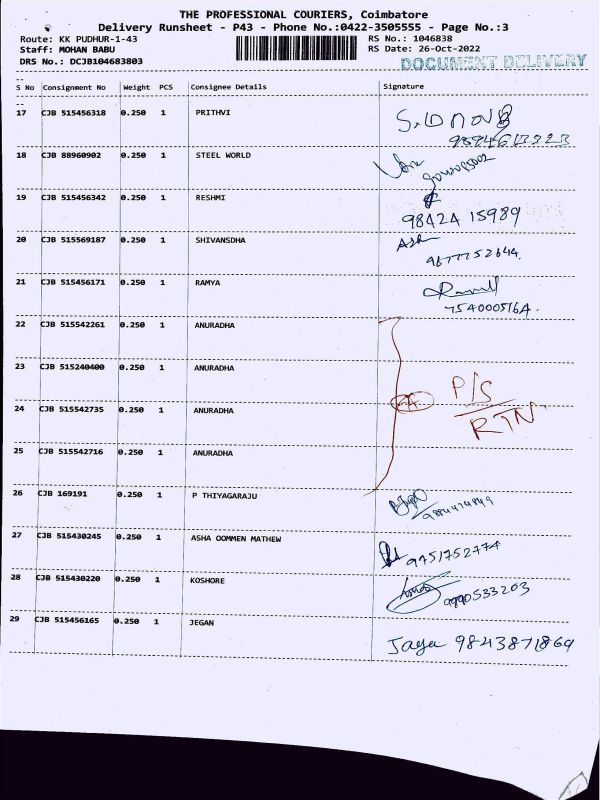 THE PROFESSIONAL COURIERS, Coimbatore
Delivery Runsheet - P43 - Phone No.:0422-3505555 - Page No.:3
Route: KK PUDHUR-1-43
RS No.: 1046838
Staff: MOHAN BABU
RS Date: 26-Oct-2022
DRS No.: DCJB104683803
DOCUMENT DELIVERY
S No Consignment No Weight PCS Consignee Details Signature
17 CJB 515456318 0.250 1 PRITHVI
18 CJB 88960902 0.250 1 STEEL WORLD
19 CJB 515456342 0.250 1 RESHMI
98424 15989
20 CJB 515569187 0.250 1 SHIVANSDHA
9677752644.
21 CJB 515456171 0.250 1 RAMYA
7540005164.
22 CJB 515542261 0.250 1 ANURADHA
23 CJB 515240400 0.250 1 ANURADHA
P/S
24 CJB 515542735 0.250 1 ANURADHA
RTN
25 CJB 515542716 0.250 1 ANURADHA
26 CJB 169191 0.250 1 P THIYAGARAJU
27 CJB 515430245 0.250 1 ASHA OOMMEN MATHEW
9451752774
28 CJB 515430220 0.250 1 KOSHORE
9990533203
29 CJB 515456165 0.250 1 JEGAN
Jaya 9843871869